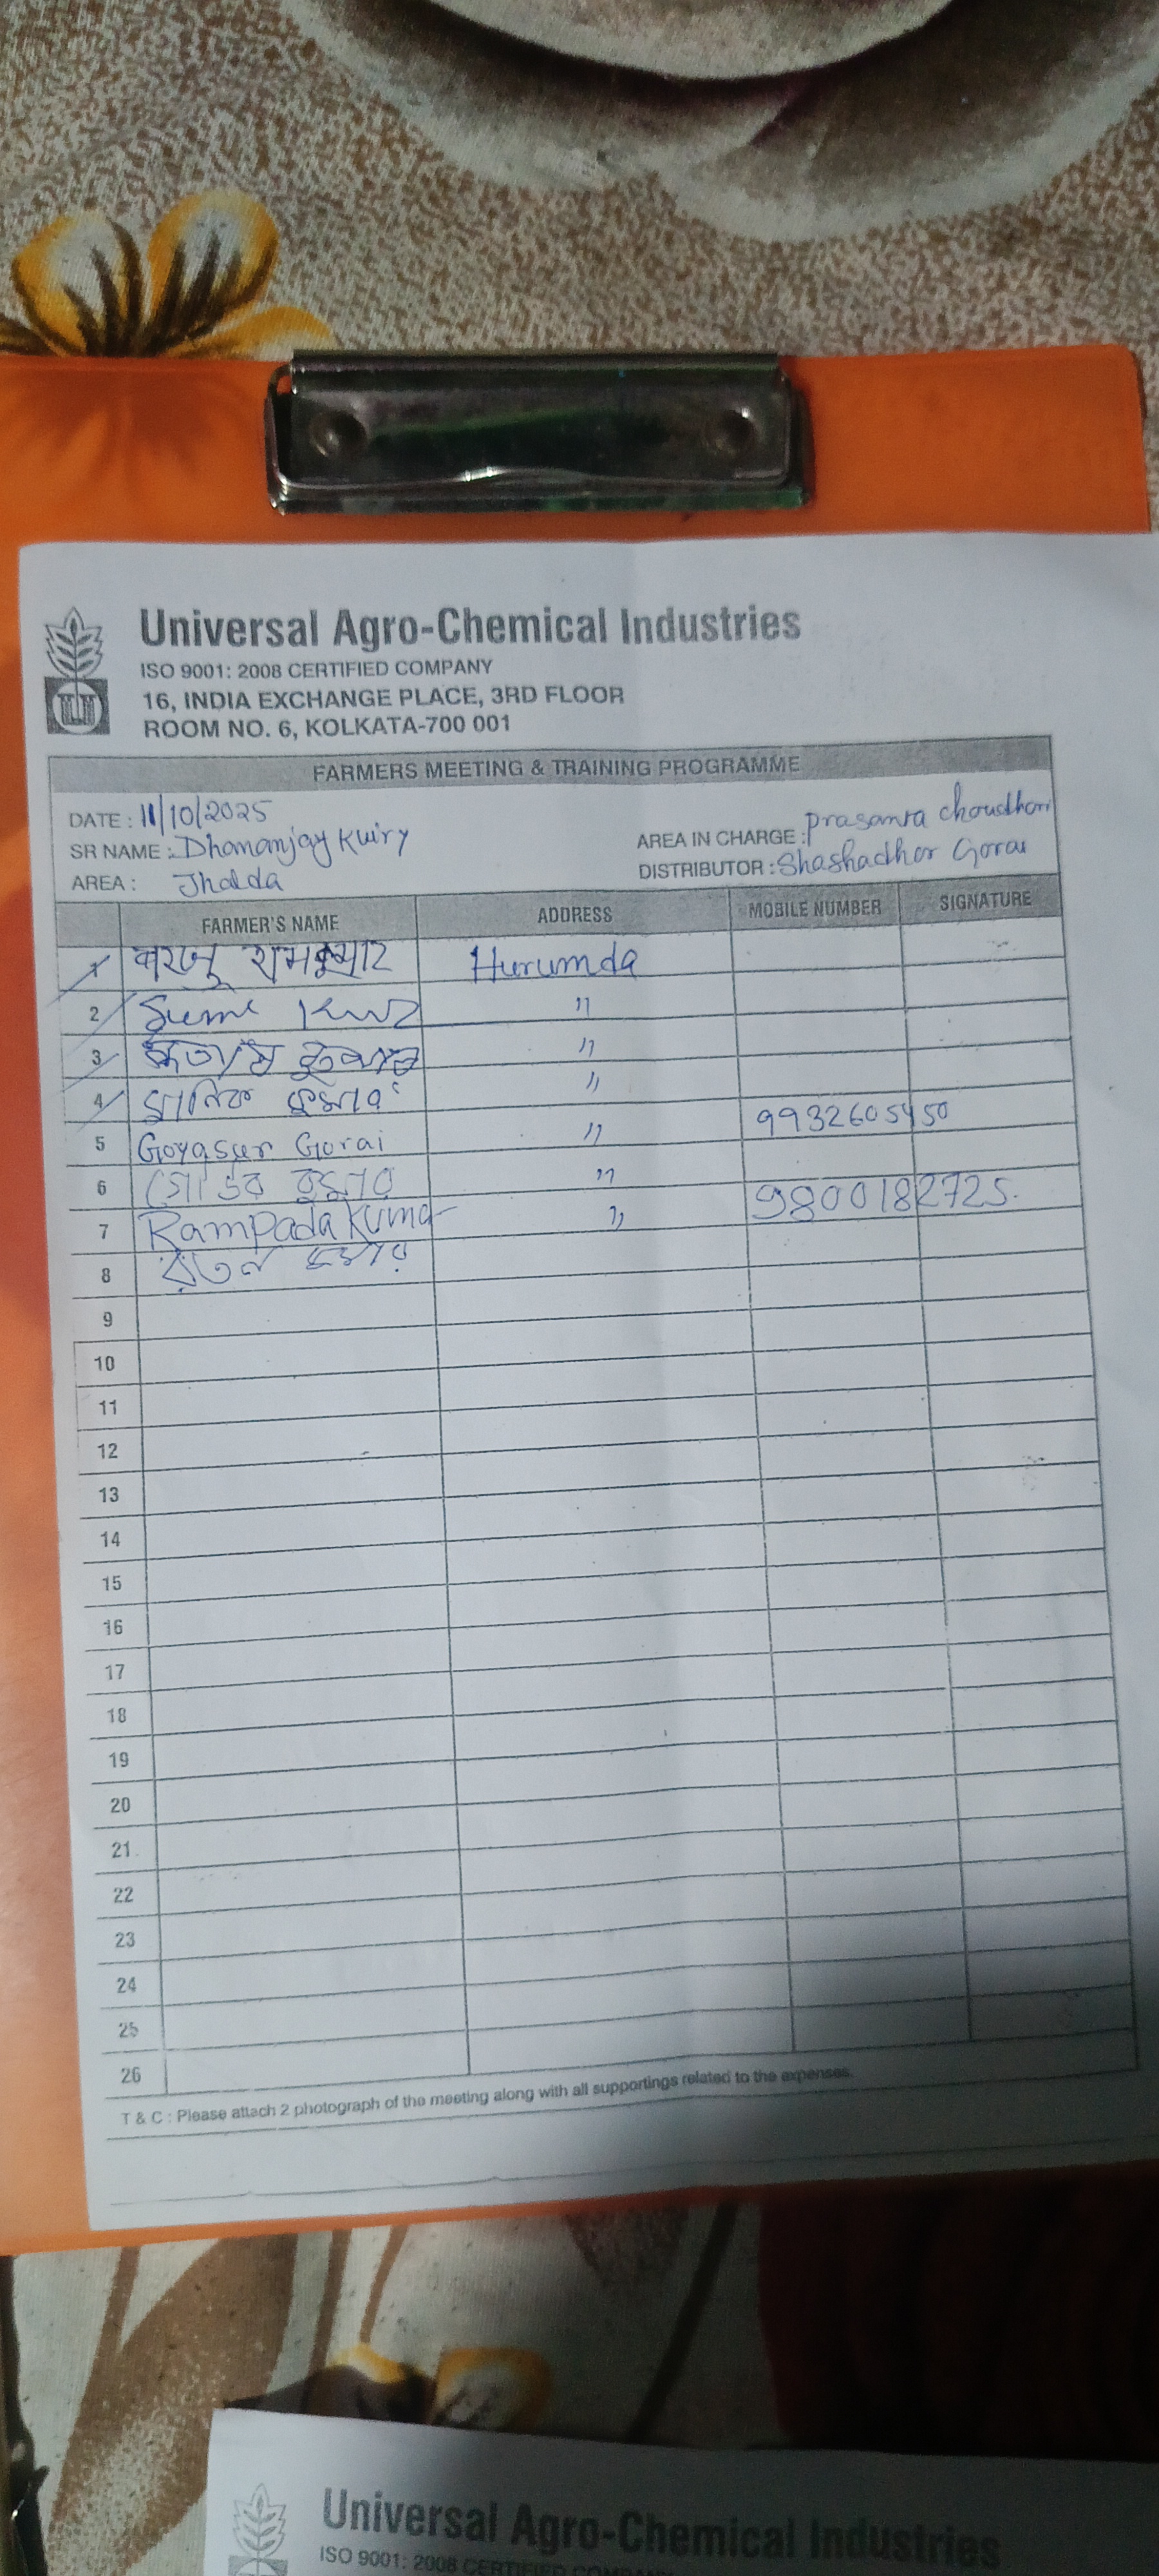 Universal Agro-Chemical Industries
ISO 9001: 2008 CERTIFIED COMPANY
16, INDIA EXCHANGE PLACE, 3RD FLOOR
ROOM NO. 6, KOLKATA-700 001
FARMERS MEETING & TRAINING PROGRAMME
DATE : 11/10/2025
SR NAME : Dhananjay Kuiry
AREA : Jhalda
AREA IN CHARGE : Prasanta Choudhori
DISTRIBUTOR : Shashadhar Gorai
FARMER'S NAME ADDRESS MOBILE NUMBER SIGNATURE
1 Hurumda
2 "
3 "
4 মানিক কুমার "
5 Goyasur Gorai " 9932605450
6 কুমার "
7 Rampada Kumar " 9800182725.
8 রতন কুমার
9
10
11
12
13
14
15
16
17
18
19
20
21
22
23
24
25
26
T & C : Please attach 2 photograph of the meeting along with all supportings related to the expenses.
Universal Agro-Chemical Industries
ISO 9001: 2008 CERTIFIED COMPANY